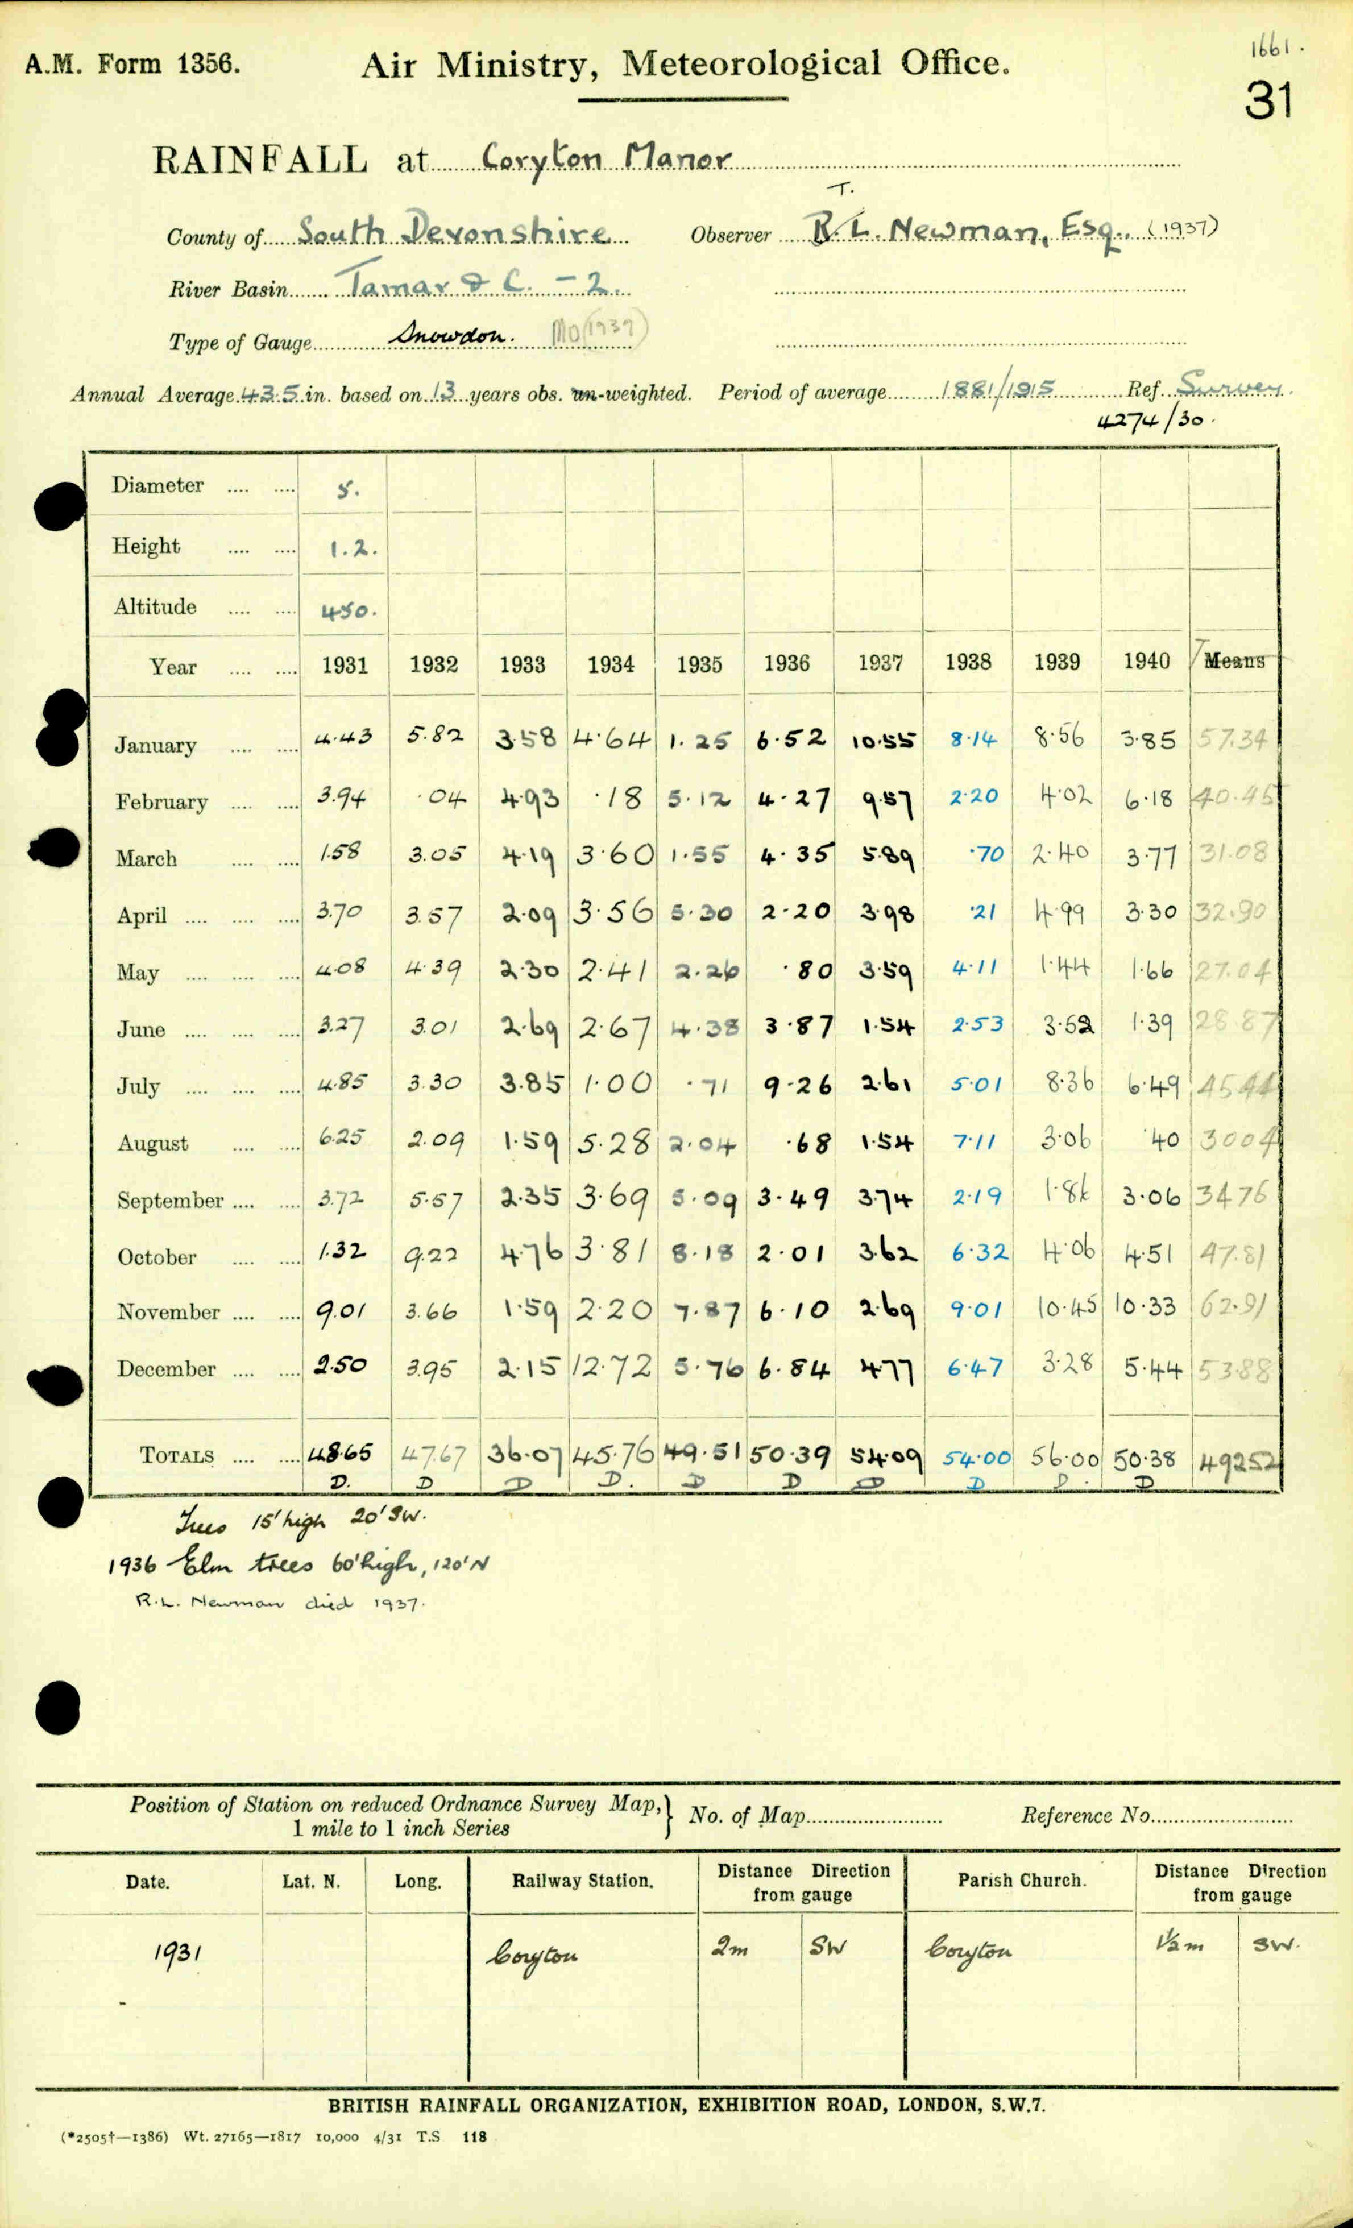 1661.
A.M. Form 1356. Air Ministry, Meteorological Office.
31
RAINFALL at Coryton Manor
T.
County of South Devonshire Observer R.L. Newman, Esq., (1937)
River Basin Tamar & C. - 2.
Type of Gauge Snowdon. MO (1937)
Annual Average 43.5 in. based on 13 years obs. un-weighted. Period of average 1881/1915 Ref. Survey.
4274/30.
Diameter 5.
Height 1.2.
Altitude 450.
Year 1931 1932 1933 1934 1935 1936 1937 1938 1939 1940 T Means
January 4.43 5.82 3.58 4.64 1.25 6.52 10.55 8.14 8.56 3.85 57.34
February 3.94 .04 4.93 .18 5.12 4.27 9.57 2.20 4.02 6.18 40.45
March 1.58 3.05 4.19 3.60 1.55 4.35 5.89 .70 2.40 3.77 31.08
April 3.70 3.57 2.09 3.56 5.30 2.20 3.98 .21 4.99 3.30 32.90
May 4.08 4.39 2.30 2.41 2.26 .80 3.59 4.11 1.44 1.66 27.04
June 3.27 3.01 2.69 2.67 4.38 3.87 1.54 2.53 3.52 1.39 28.87
July 4.85 3.30 3.85 1.00 .71 9.26 2.61 5.01 8.36 6.49 45.44
August 6.25 2.09 1.59 5.28 2.04 .68 1.54 7.11 3.06 .40 30.04
September 3.72 5.57 2.35 3.69 5.09 3.49 3.74 2.19 1.86 3.06 34.76
October 1.32 9.22 4.76 3.81 8.18 2.01 3.62 6.32 4.06 4.51 47.81
November 9.01 3.66 1.59 2.20 7.87 6.10 2.69 9.01 10.45 10.33 62.91
December 2.50 3.95 2.15 12.72 5.76 6.84 4.77 6.47 3.28 5.44 53.88
TOTALS 48.65 47.67 36.07 45.76 49.51 50.39 54.09 54.00 56.00 50.38 49252
D. D D D. D D D D D. D
Trees 15' high 20' SW.
1936 Elm trees 60' high, 120' N
R.L. Newman died 1937.
Position of Station on reduced Ordnance Survey Map, 1 mile to 1 inch Series } No. of Map Reference No.
Date. Lat. N. Long. Railway Station. Distance Direction from gauge Parish Church. Distance Direction from gauge
1931 Coryton 2m SW Coryton 1/2 m SW.
BRITISH RAINFALL ORGANIZATION, EXHIBITION ROAD, LONDON, S.W.7.
(*2505†—1386) Wt. 27165—1817 10,000 4/31 T.S 118